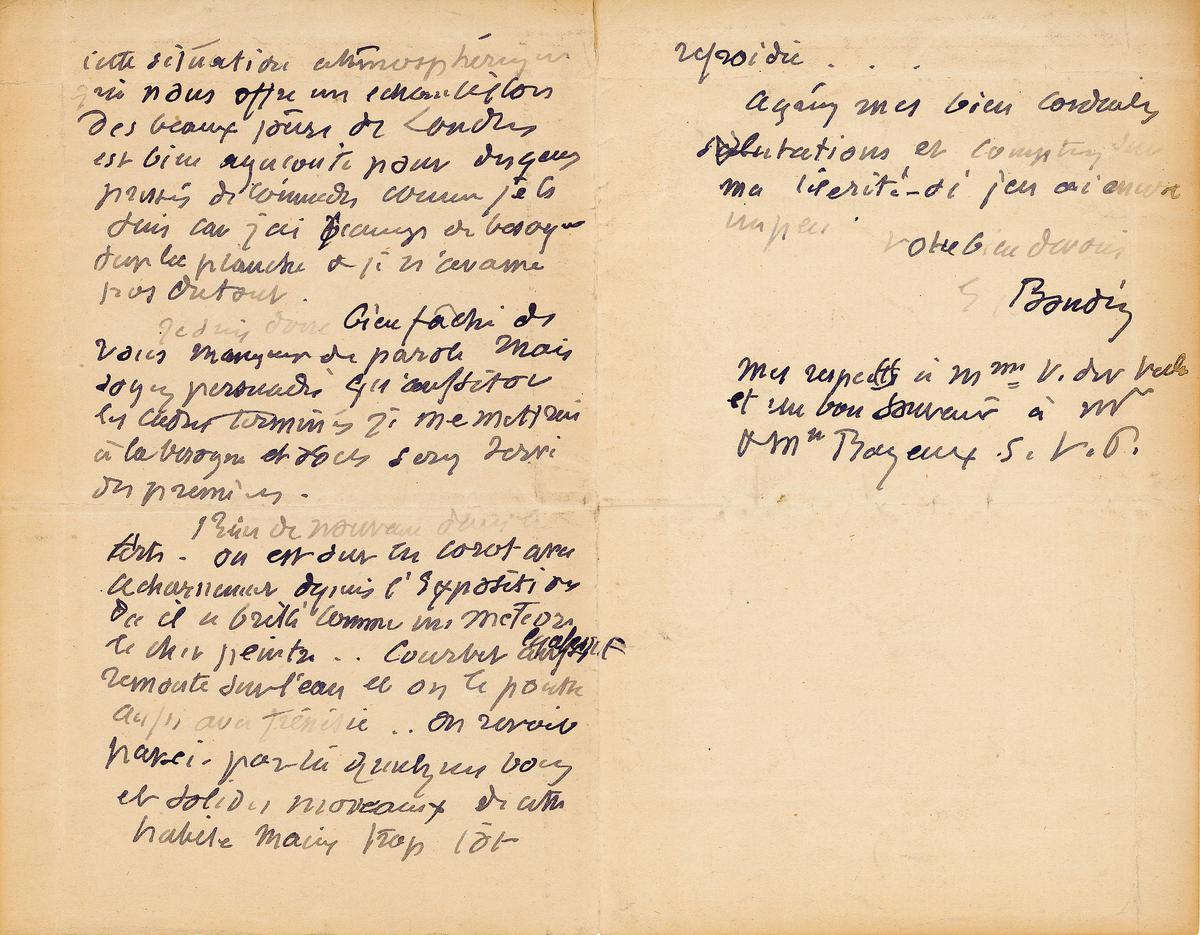 cette situation atmosphérique
qui nous offre un echantillon
des beaux jours de Londres
est bien agacante pour des gens
pressés de comandes comme je le
suis car j'ai beaucoup de besogne
sur la planche & je n'avance
pas du tout.
Je suis donc bien faché de
vous manquer de parole mais
soyez persuadé qu'aussitot
les cadres terminés je me mettrai
à la besogne et vous serez servi
des premiers.
Rien de nouveau dans les
arts - on est sur les corot avec
acharnement depuis l'Exposition
Ou il a brillé comme un meteore
le cher peintre .. Courbet
remonte sur l'eau et on le pousse
aussi avec frénésie .. on revoit
par-ci - par-là quelques bons
et solides morceaux de cette
habile main trop tôt
refroidie . . .
Agréez mes bien cordiales
salutations et comptez sur
ma célérité - si j'en ai encore
un peu. votre bien devoué
E. Boudin
mes respects à mme V. der Velde
et un bon souvenir à mr
& Mme Bayeux S. V. P.